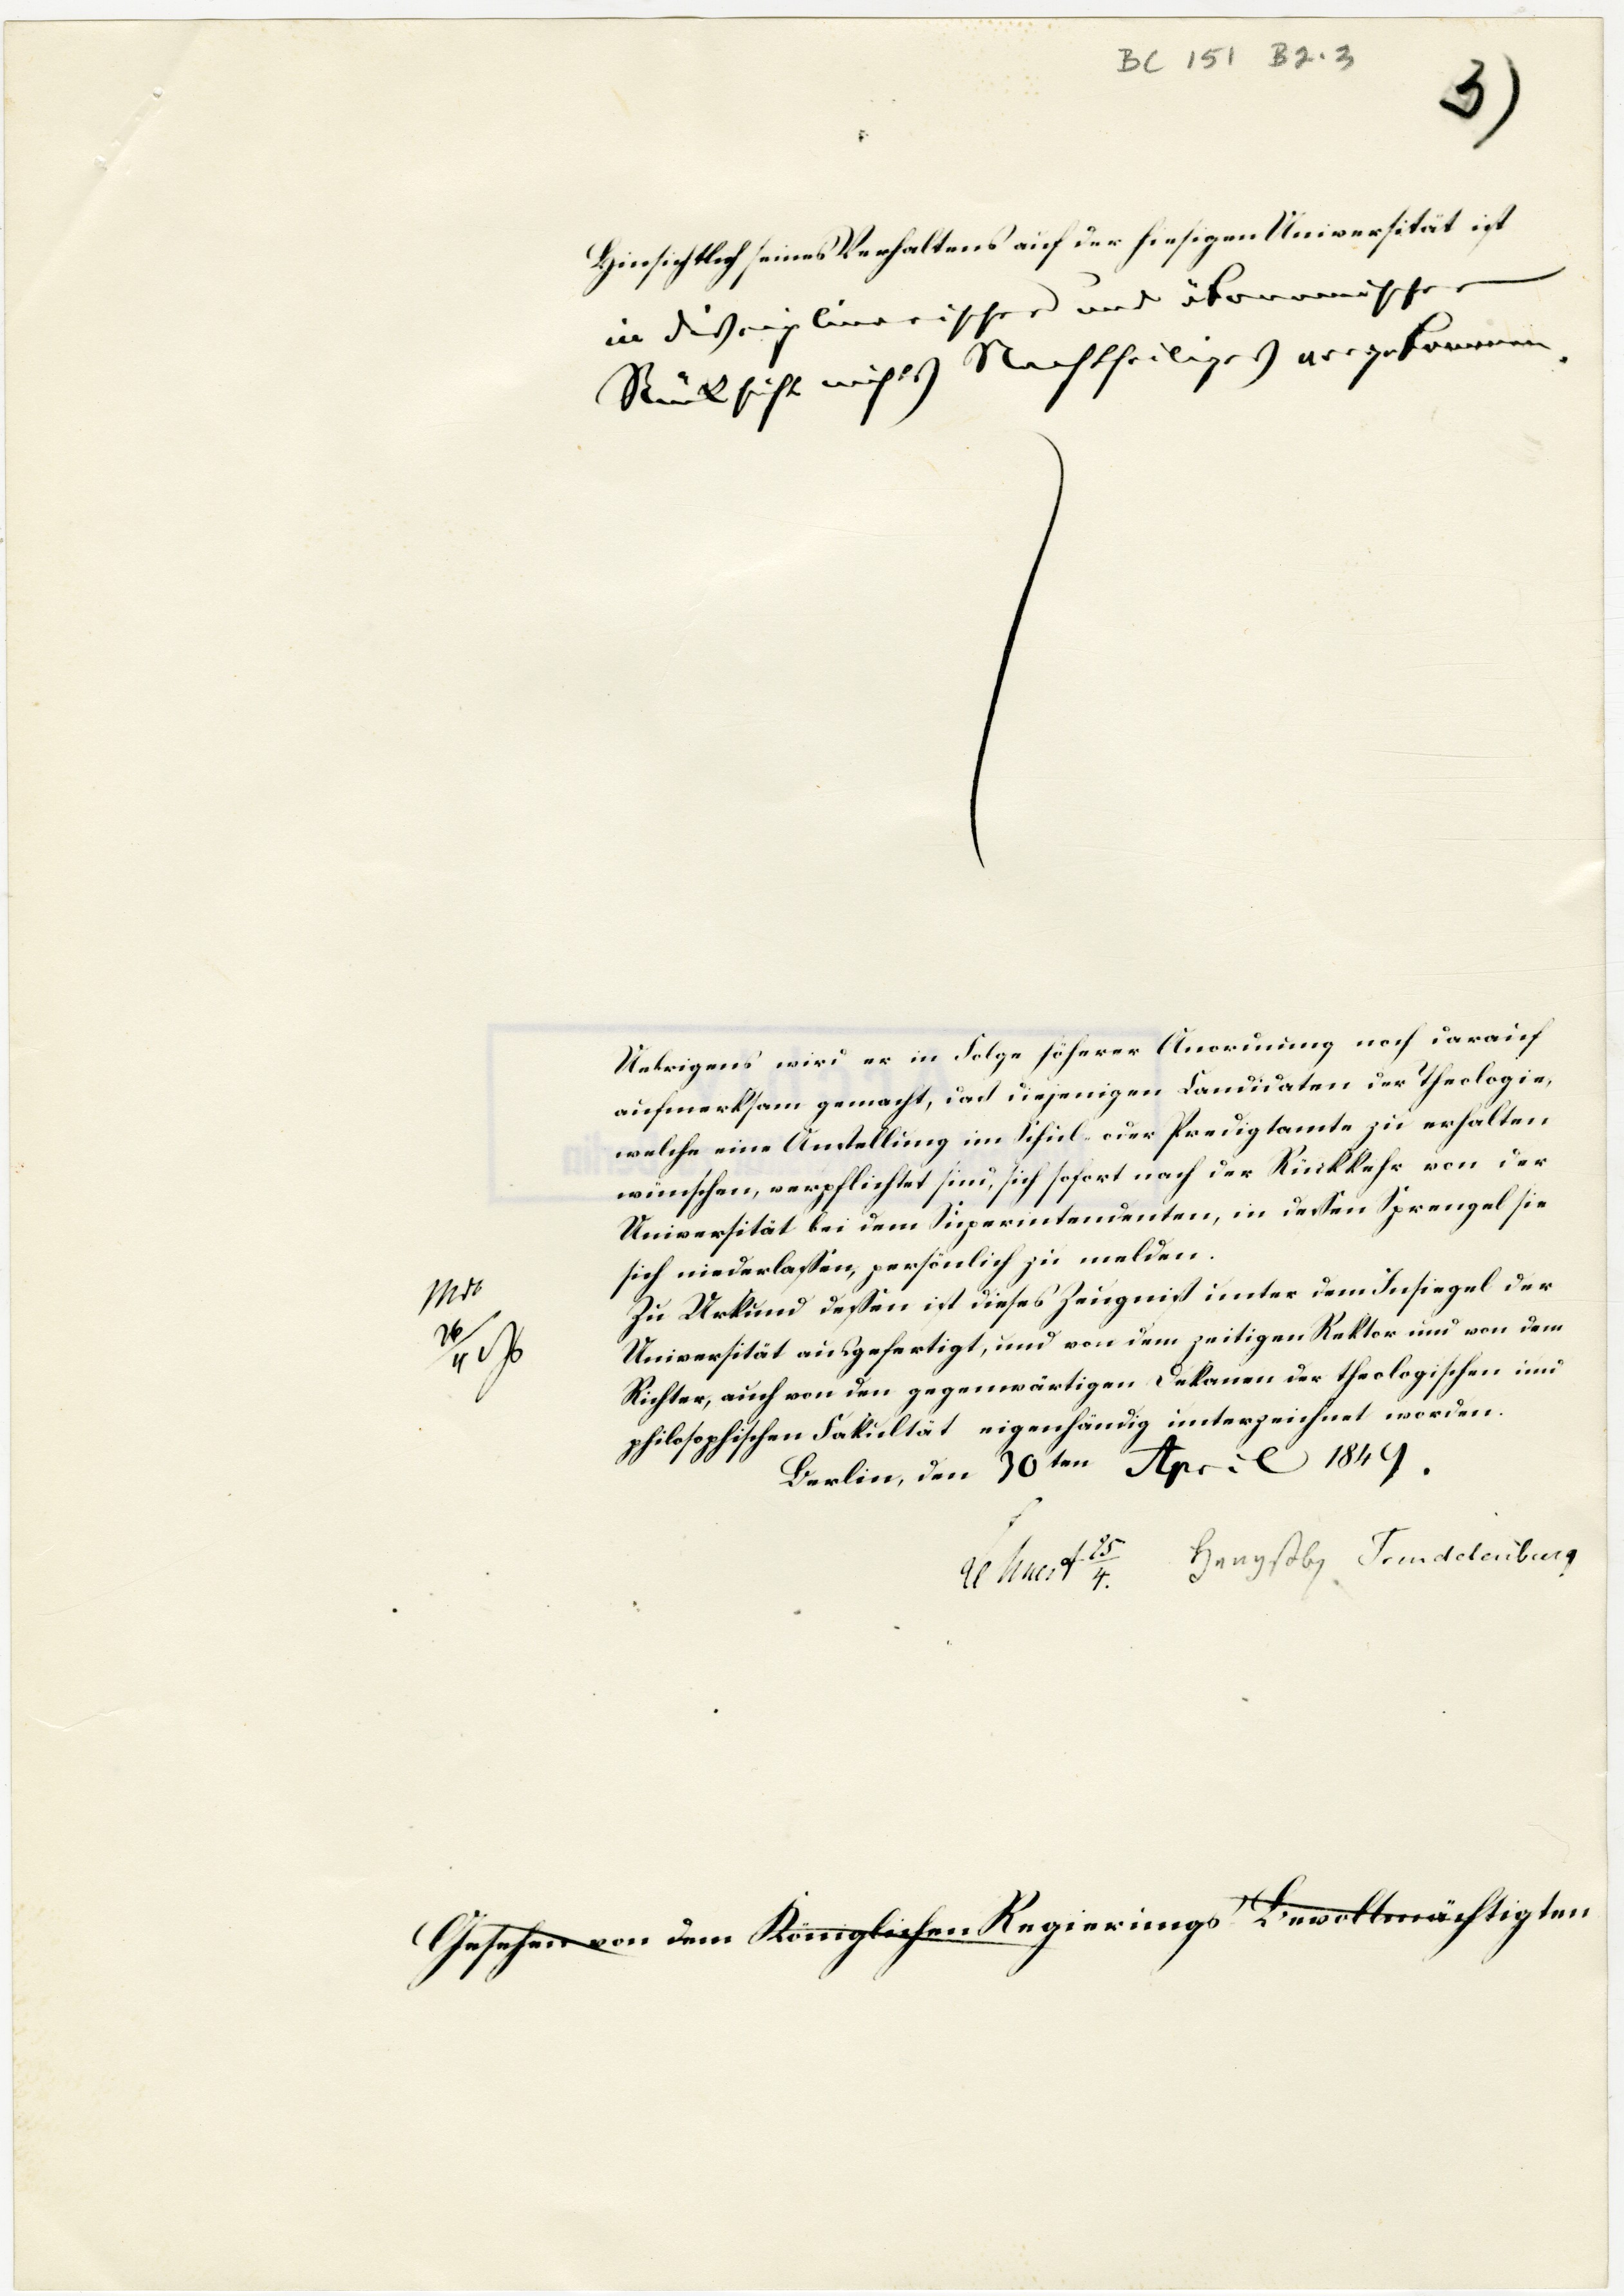 BC 151 B2.3
3)
Hinsichtlich seines Verhaltens auf der hiesigen Universität ist
in disciplinarischer und ökonomischer
Rücksicht nichts Nachtheiliges vorgekommen.
Uebrigens wird er in Folge höherer Anordnung noch darauf
aufmerksam gemacht, daß diejenigen Candidaten der Theologie,
welche eine Anstellung im Schul- oder Predigtamte zu erhalten
wünschen, verpflichtet sind, sich sofort nach der Rückkehr von der
Universität bei dem Superintendenten, in dessen Sprengel sie
sich niederlassen, persönlich zu melden.
Zu Urkund dessen ist dieses Zeugniß unter dem Insiegel der
Universität ausgefertigt, und von dem zeitigen Rektor und von dem
Richter, auch von den gegenwärtigen Dekanen der theologischen und
philosophischen Fakultät eigenhändig unterzeichnet worden.
Berlin, den 30ten April 1849.
Lehnert 25/4. Hengstbg Trendelenburg
26/4
Gesehen von dem Königlichen Regierungs Bevollmächtigten